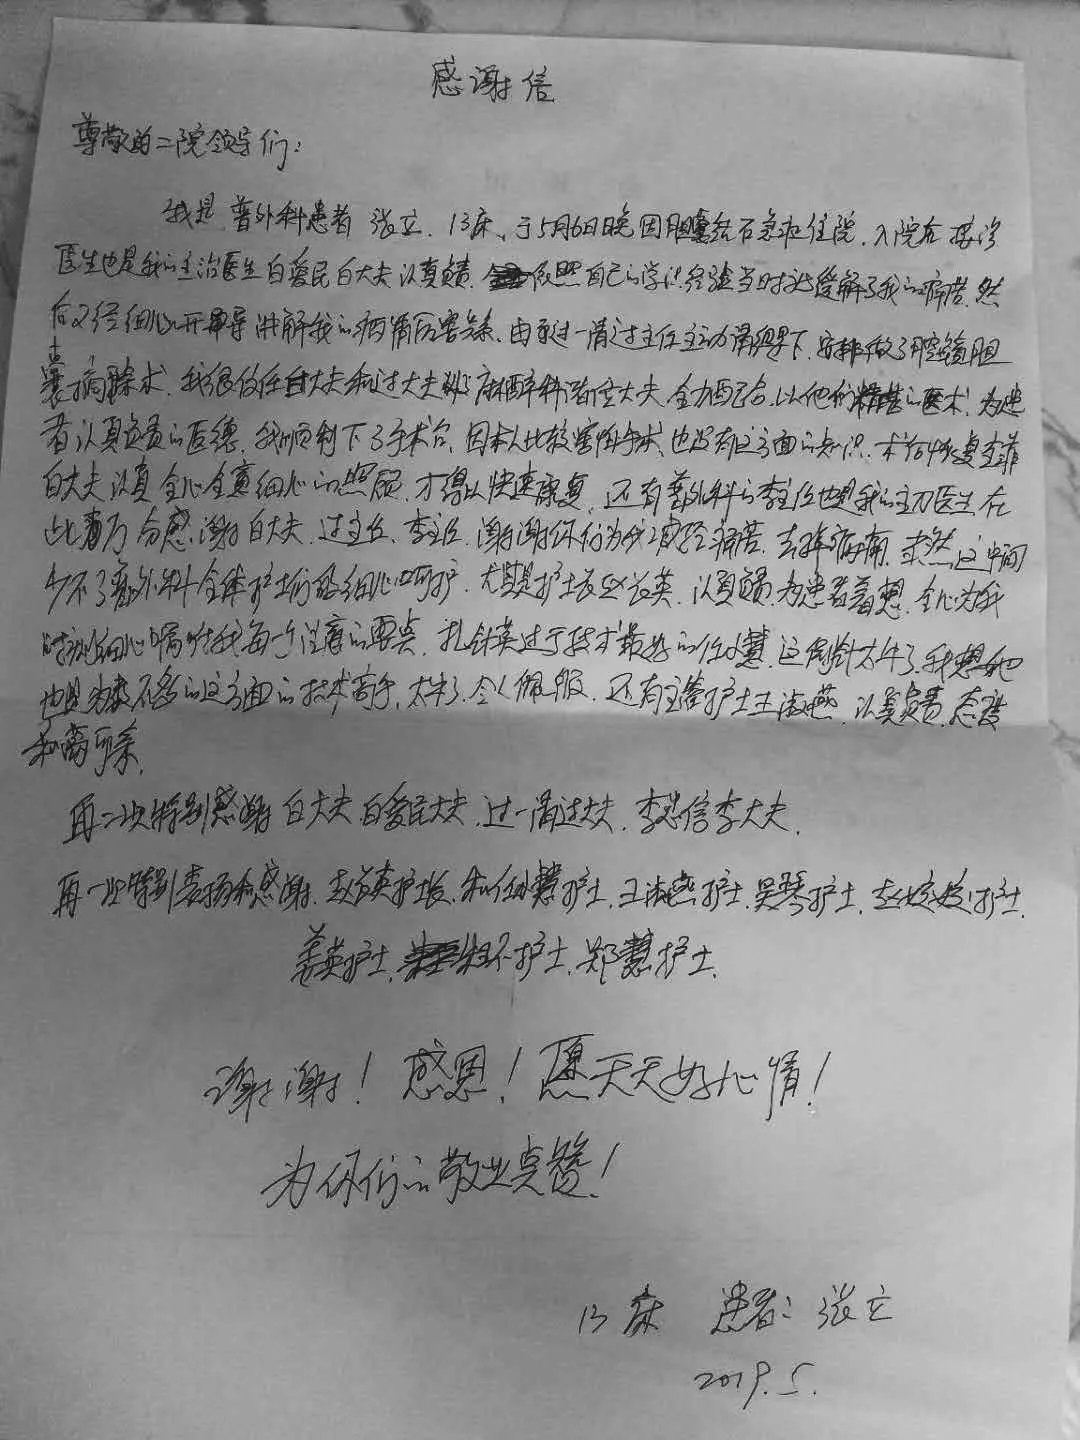 感谢信
尊敬的二院领导们：
我是普外科患者张立，13床，于5月6日晚因胆囊结石急诊住院，入院后接诊
医生也是我的主治医生白爱民白大夫认真负责，依照自己的学识经验当时就缓解了我的病苦，然
后又经细心开导讲解我的病情厉害关系，由过一清过主任主动请缨下，安排做了腔镜胆
囊摘除术，我很信任白大夫和过大夫，麻醉科诸位大夫全力配合，以他们精湛的医术，为患
者认真负责的医德，我顺利下了手术台，因本人比较害怕手术，也没有这方面的知识，术后恢复全靠
白大夫认真全心全意细心的照顾，才得以快速康复，还有普外科的李主任也是我的主刀医生在
此万分感谢白大夫，过主任，李主任，谢谢你们为我减轻痛苦，去掉病痛，当然这中间
少不了普外科全体护士们的细心呵护，尤其是护士长赵益英，认真负责，为患者着想，全心为我
细心嘱咐我每一个注意的要点，扎针技术最好的任小慧，这
也是为数不多的这方面的技术高手，太牛了，令人佩服，还有主管护士王淑燕，认真负责，态度
和蔼可亲。
再一次特别感谢白大夫白爱民大夫，过一清过大夫，李忠信李大夫，
再一次特别表扬和感谢，赵益英护士长，和任小慧护士，王淑燕护士，吴琴护士，赵姣姣护士，
姜英护士，护士，郑慧护士，
谢谢！感恩！愿天天好心情！
为你们的敬业点赞！
13床 患者：张立
2019.5.